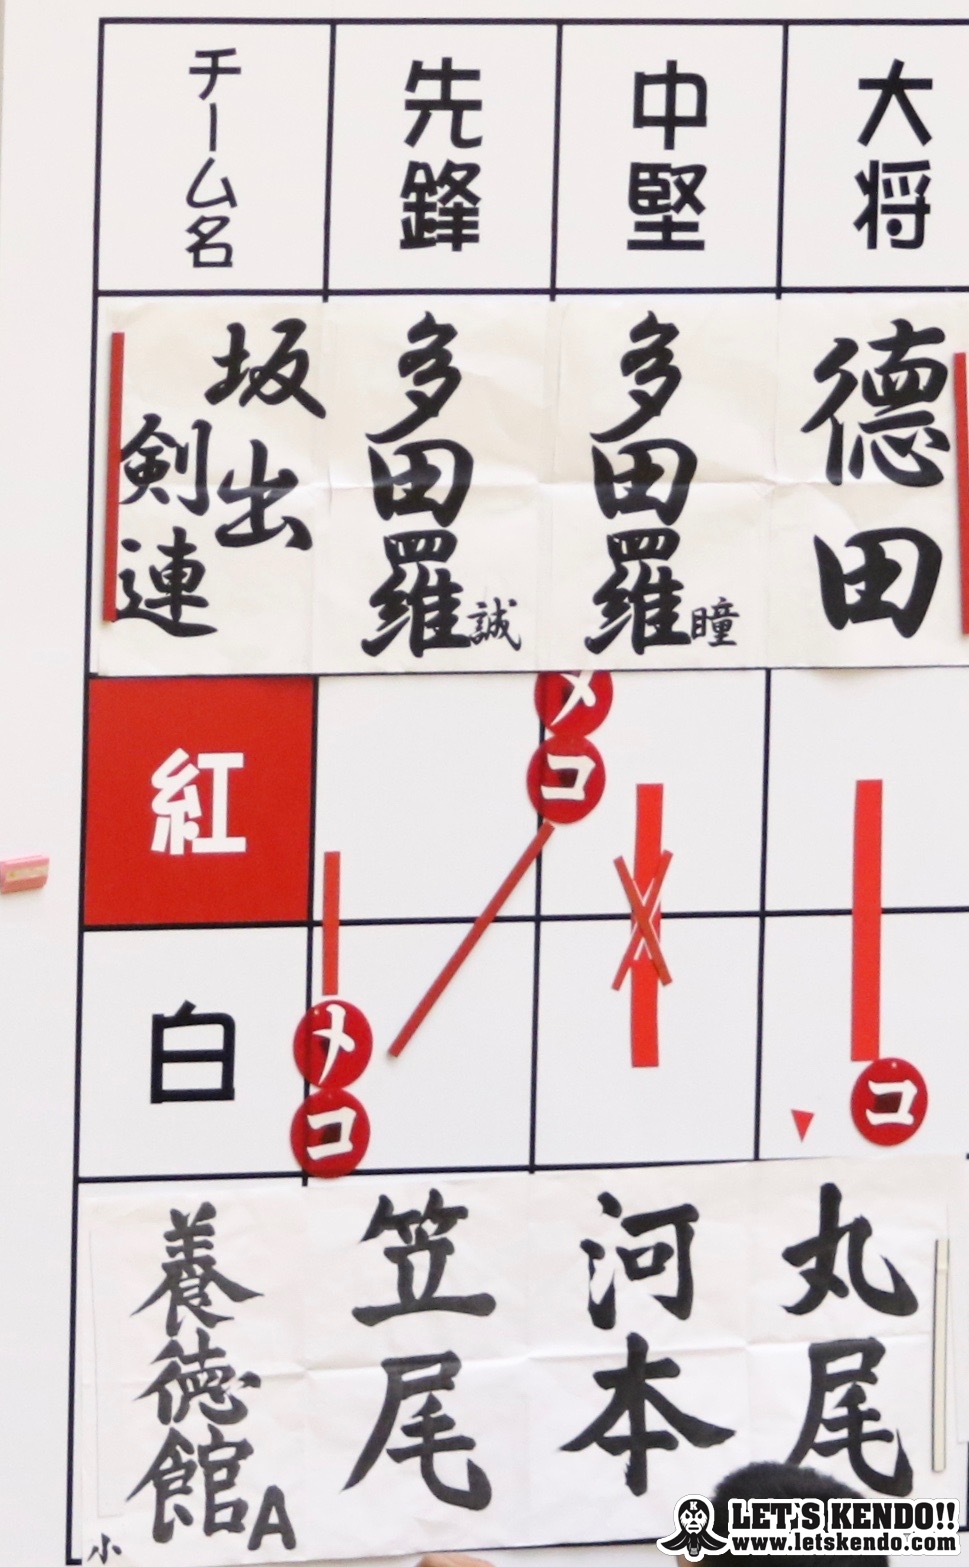 チーム名
先鋒
中堅
大将
坂出
剣連
多田羅 誠
多田羅 瞳
徳田
紅
メ
コ
白
メ
コ
コ
養徳館A
小
笠尾
河本
丸尾
LET'S KENDO!!
www.letskendo.com